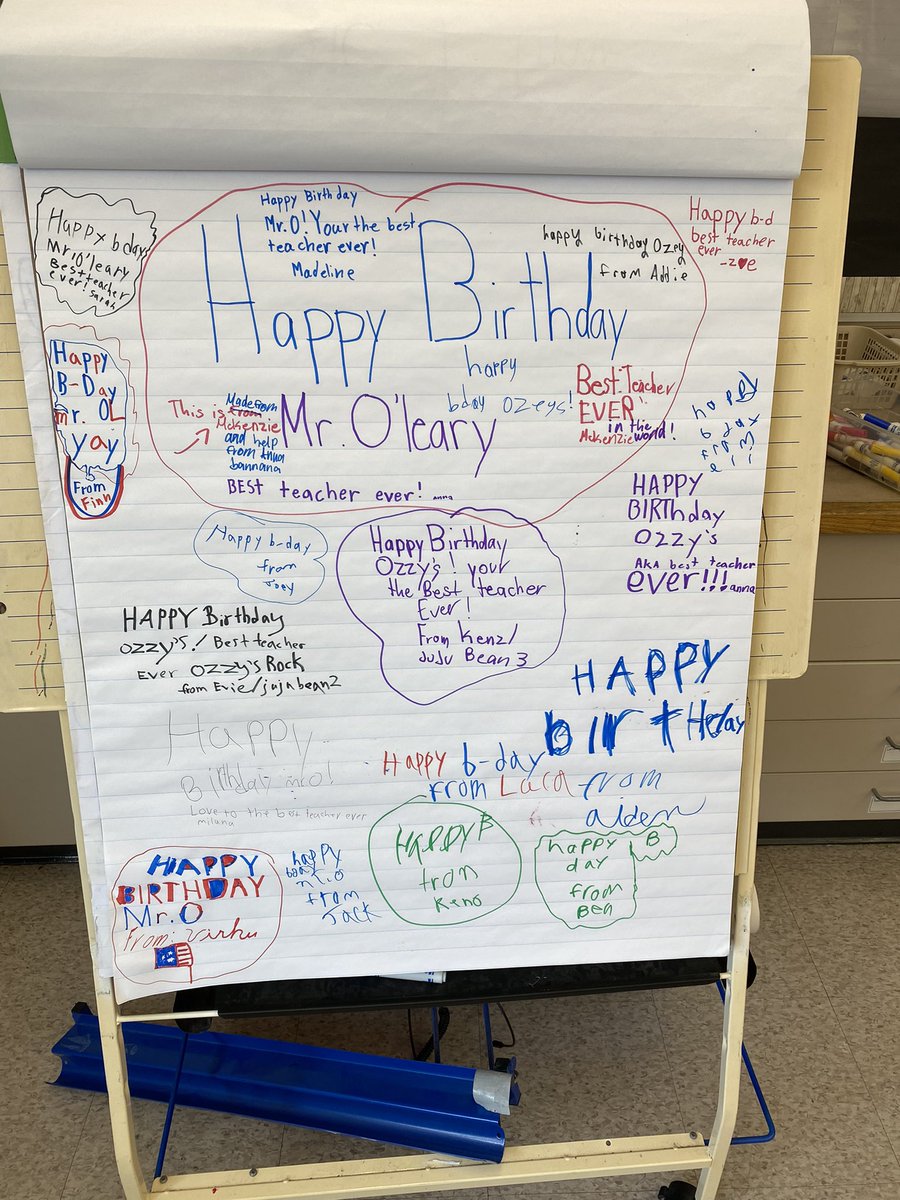 Happy bday
Mr. O'leary
Best teacher
ever! sarah
Happy Birthday
Mr. O! Your the best
teacher ever!
Madeline
happy birthday Ozey
from Addie
Happy b-d
best teacher
ever
-z♥e
Happy Birthday
Mr. O'leary
happy
bday Ozeys!
Best Teacher
EVER
in the
Mckenzie world!
This is from
Made from
Mckenzie
and help
from
bannana
BEST teacher ever! anna
Happy
B-Day
Mr. OL
yay
From
Finn
happy
bday
from
HAPPY
BIRTHday
OZZY's
AKA best teacher
ever!!! anna
Happy b-day
from
Joey
Happy Birthday
Ozzy's! your
the Best teacher
Ever!
From Kenz/
JuJu Bean 3
HAPPY Birthday
OZZY'S! Best teacher
Ever OZZY's Rock
from Evie/jujubean2
HAPPY
birtHday
from
alden
Happy
Birthday mr o!
Love to the best teacher ever
milana
Happy b-day
from Lara
HAPPY
BIRTHDAY
Mr. O
From:
happy
bday
mr.o
from
Jack
Happy B
from
Keno
happy B
day
from
Ben